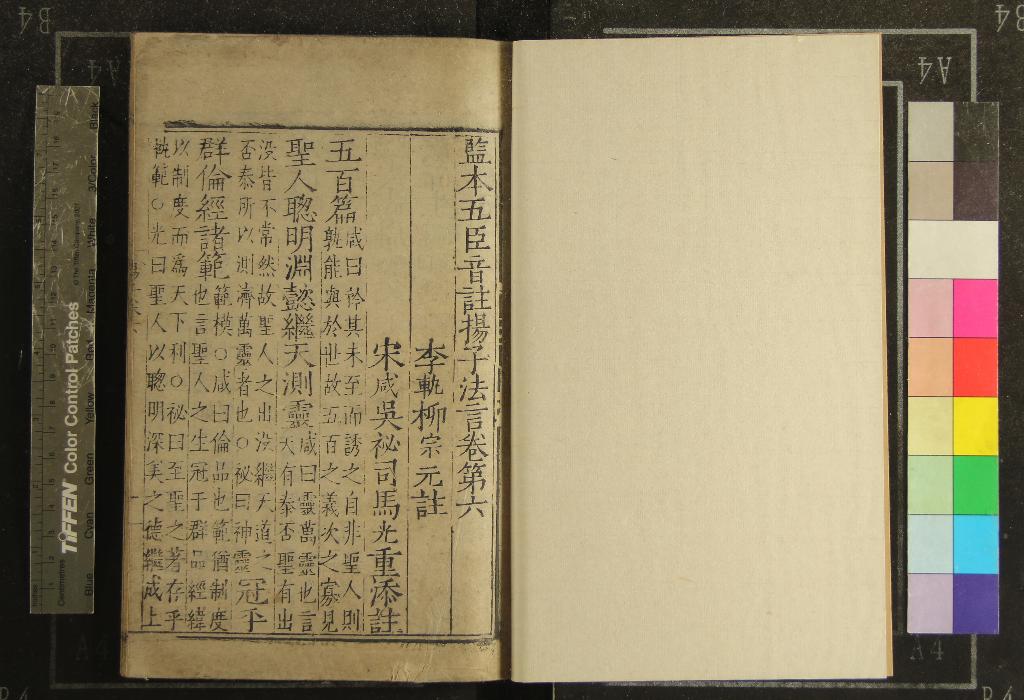 監本五臣音註揚子法言卷第六
李軌柳宗元註
宋咸吳祕司馬光重添註
五百篇
咸曰矜其未至而誘之自非聖人則
孰能與於世故五百之義次之寡見
聖人聰明淵懿繼天測靈
咸曰靈萬靈也言
天有泰否聖有出
没皆不常然故聖人之出没繼天道之
否泰所以測濟萬靈者也○祕曰神靈
冠乎
群倫經諸範
範模○咸曰倫品也範猶制度
也言聖人之生冠于群品經緯
以制度而爲天下利○祕曰至聖之著存乎
軌範○光曰聖人以聰明深美之德繼成上
TIFFEN Color Control Patches
© The Tiffen Company, 2007
Centimetres
Blue
Cyan
Green
Yellow
Red
Magenta
White
3/Color
Black
B4
B4
A4
A4
A4
A4
B4
B4